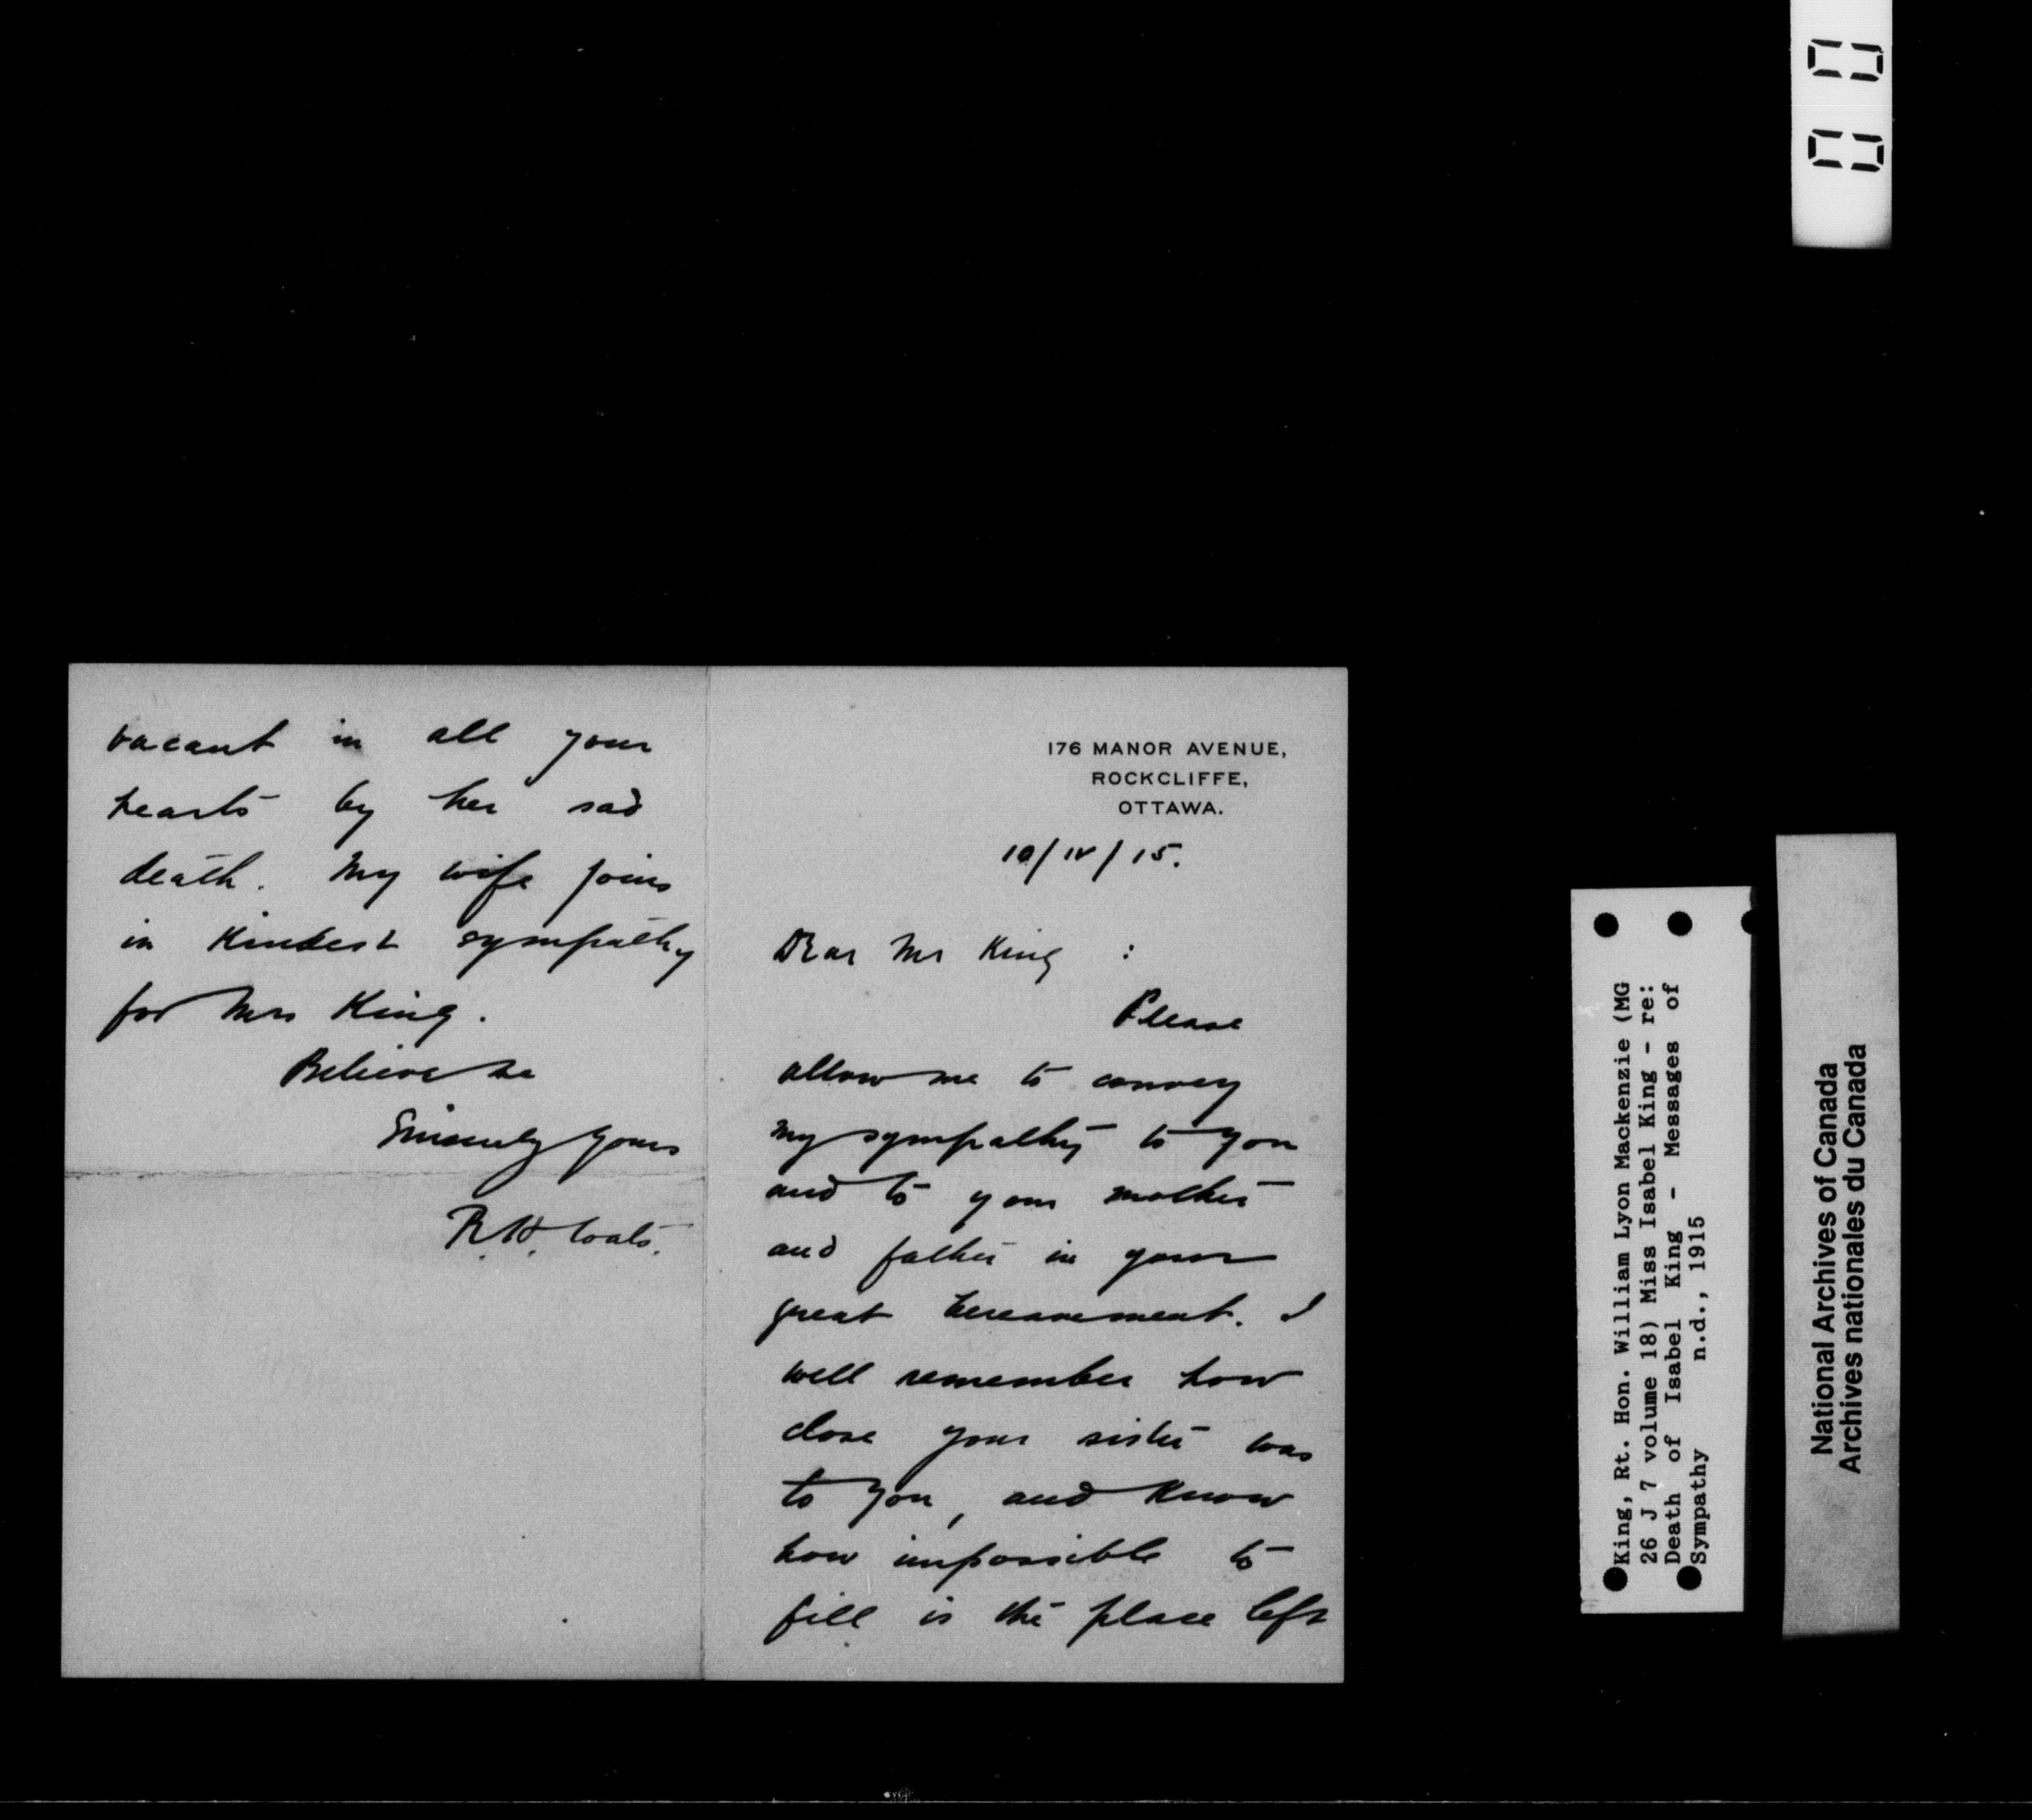 176 MANOR AVENUE,
ROCKCLIFFE,
OTTAWA.
10/IV/15.
Dear Mr King :
Please
allow me to convey
my sympathy to you
and to your mother
and father in your
great bereavement. I
well remember how
close your sister was
to you, and know
how impossible to
fill is the place left
vacant in all your
hearts by her sad
death. My wife joins
in kindest sympathy
for Mrs King.
Believe me
Sincerely yours
R. H. Coats.
King, Rt. Hon. William Lyon Mackenzie (MG
26 J 7 volume 18) Miss Isabel King - re:
Death of Isabel King - Messages of
Sympathy n.d., 1915
National Archives of Canada
Archives nationales du Canada
00